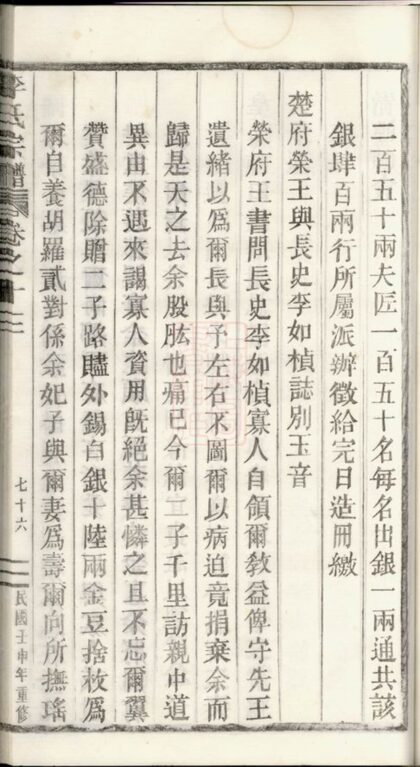 二百五十兩夫匠一百五十名每名出銀一兩通共該
銀肆百兩行所屬派辦徵給完日造冊繳
楚府榮王與長史李如楨誌別玉音
榮府王書問長史李如楨寡人自領爾教益俾守先王
遺緒以爲爾長與予左右不圖爾以病迫竟捐棄余而
歸是天之去余股肱也痛已今爾二子千里訪親中道
異由不遇來謁寡人資用既絕余甚憐之且不忘爾翼
贊盛德除贈二子路贐外錫白銀十陸兩金豆捨枚爲
爾自養胡羅貳對係余妃子與爾妻爲壽爾向所撫瑤
李氏宗譜 卷之十二
七十六
民國壬申年重修